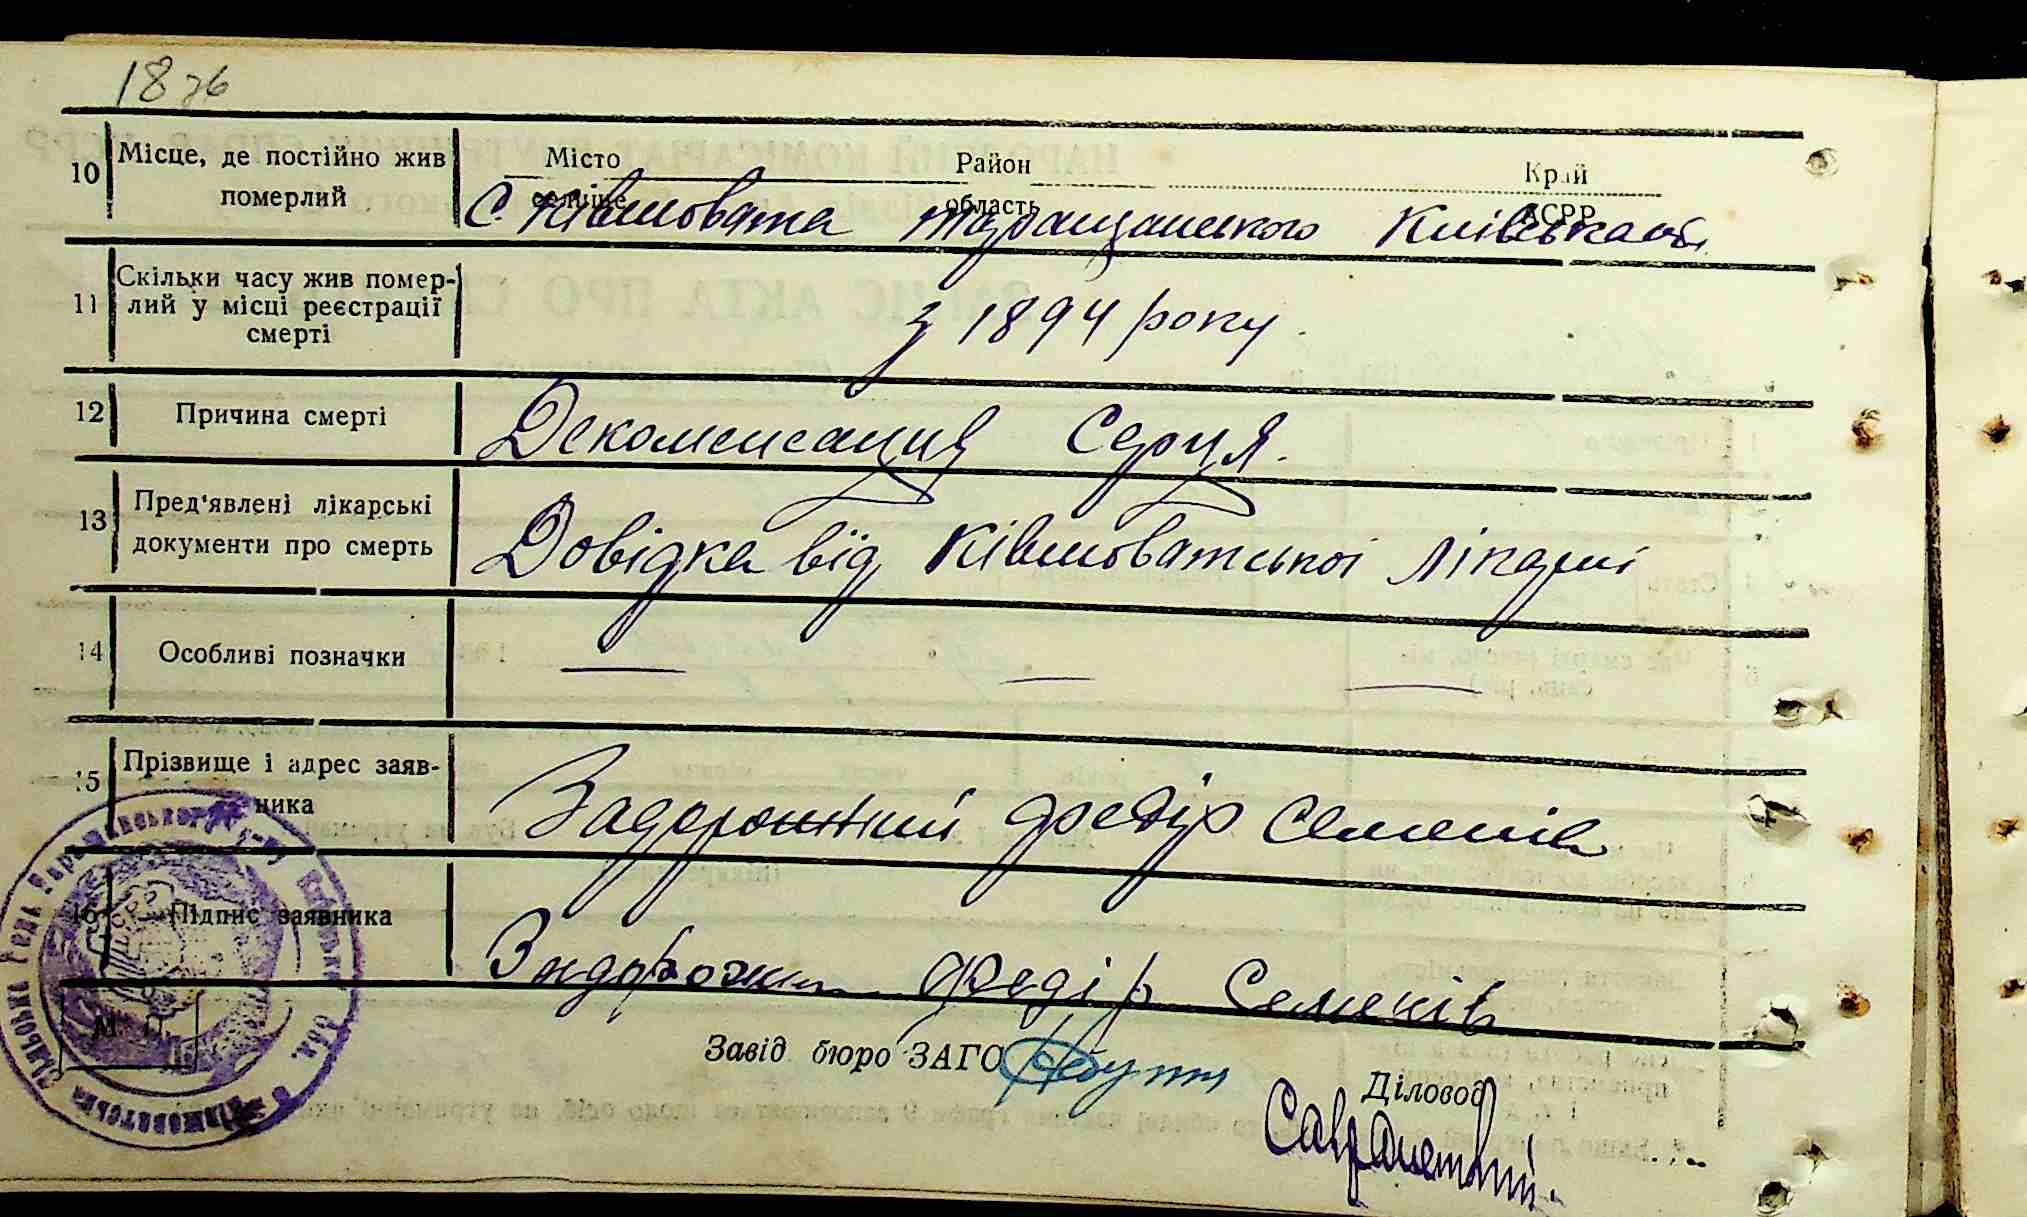 18 зб
10 Місце, де постійно жив померлий Місто селище Район область Край АСРР
с. Ківшовата Таращанського Київська обл.
11 Скільки часу жив помер-
лий у місці реєстрації
смерті
з 1894 року.
12 Причина смерті Декоменсация Серця.
13 Пред'явлені лікарські
документи про смерть
Довідка від Ківшоватської лікарні
14 Особливі позначки — — —
15 Прізвище і адрес заяв-
ника
Задорожний Федір Семенів
16 Підпис заявника
Задорожний Федір Семенів
М. П.
Завід бюро ЗАГС
Діловод